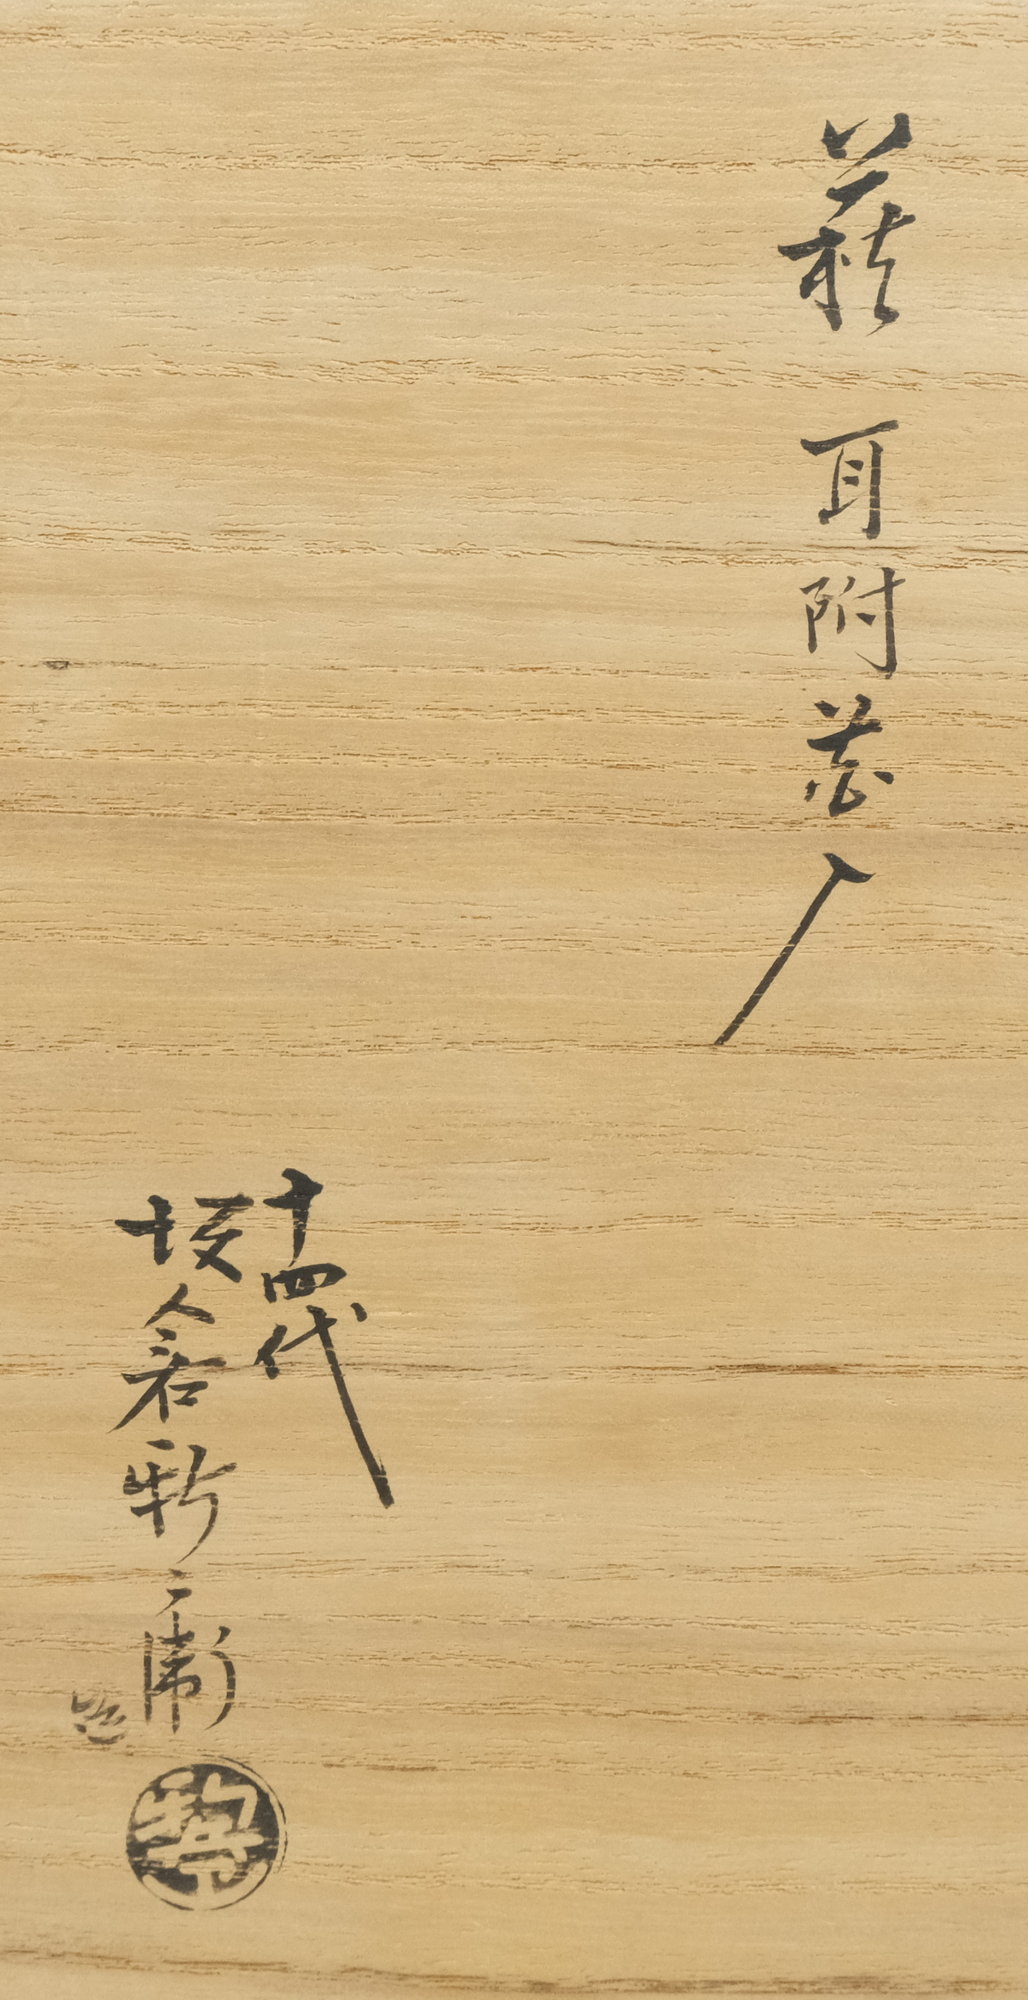 萩 耳附花入
十四代
坂倉新兵衛
造